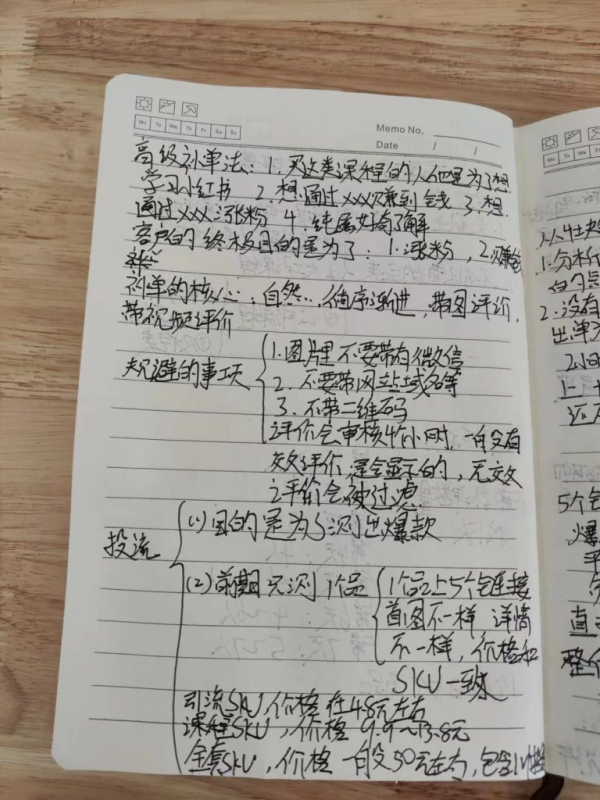 Mo Tu We Th Fr Sa Su
Memo No.
Date / /
高级补单法：1. 买这类课程的人他是为了想
学习小红书 2. 想通过xxx赚到钱 3. 想
通过xxx涨粉 4. 纯属好奇了解
客户的终极目的是为了：1. 涨粉，2. 赚钱
补单的核心：自然…循序渐进，带图评价，
带视频评价
规避的事项
1. 图片里不要带有微信
2. 不要带网站域名等
3. 不带二维码
评价会审核4个小时，一般没有
效评价是会显示的，无效
评价会被过虑
投流
(1) 目的是为了测出爆款
(2) 前期只测1个品
1个品上5个包连接
首图不一样 详情
不一样，价格和
SKU一致
引流SKU，价格在4.8元左右
课程SKU，价格 9.9～13.8元
全套SKU，价格一般30元左右，包含1V1
从
1. 分析
的
2. 没有
出单
2小时
上
还
5个
爆
直
整个